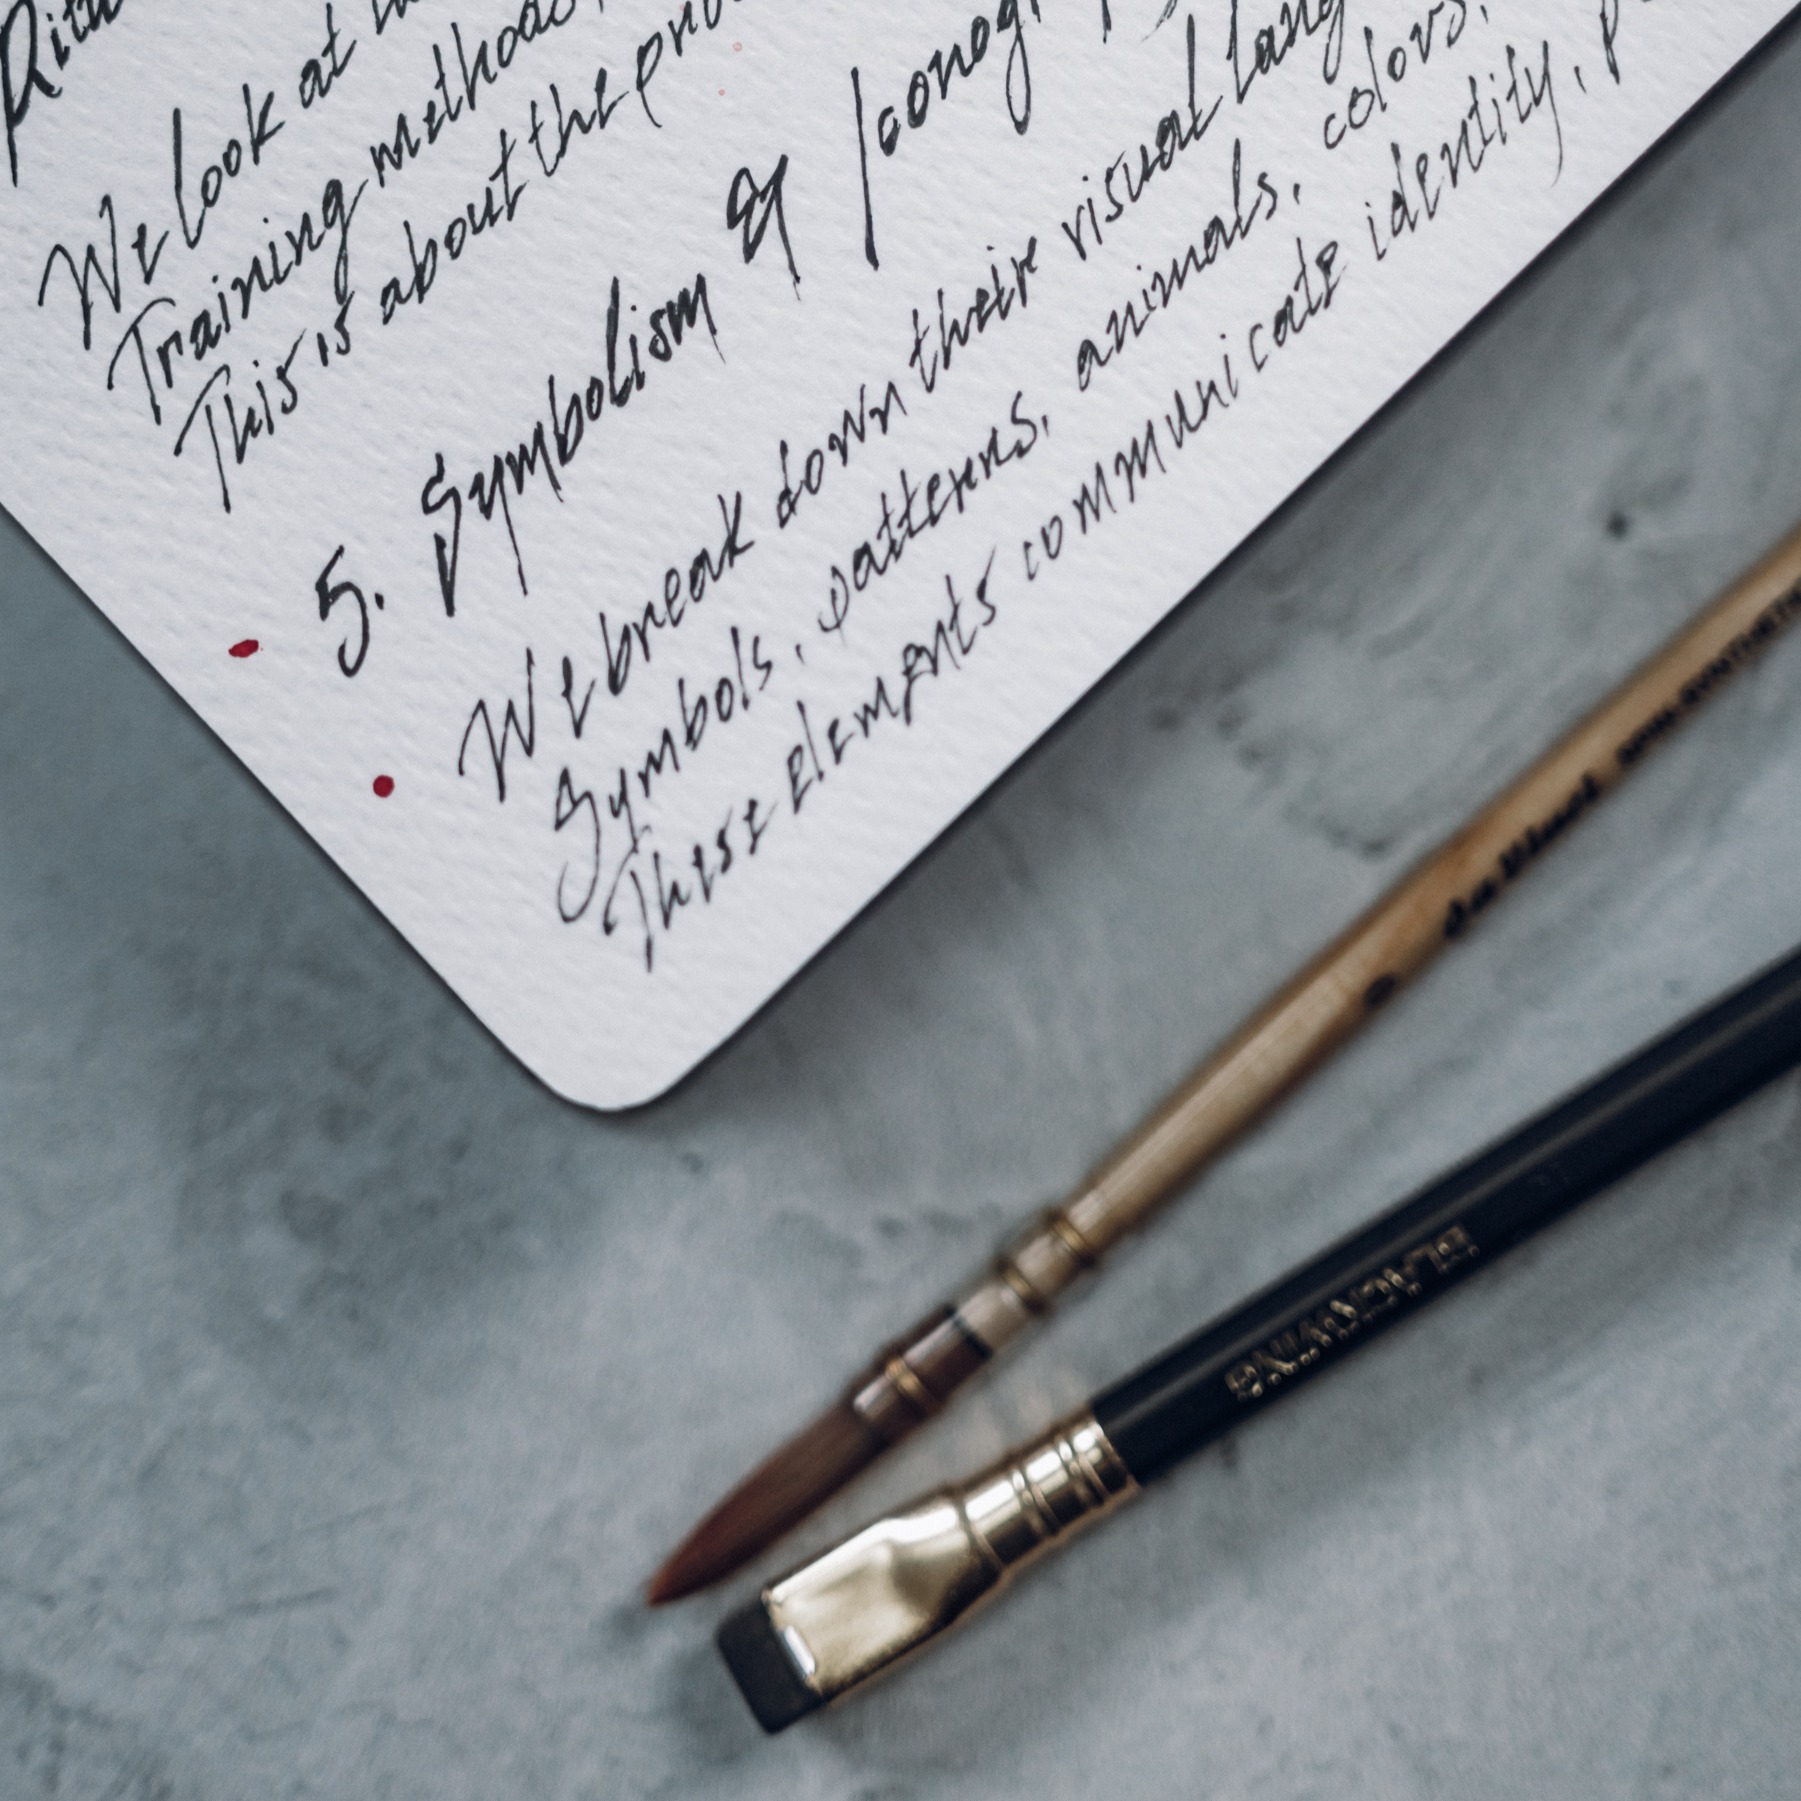 We look at
Training methods,
This is about the
5. Symbolism & Iconog
We break down their visual lang
Symbols, patterns, animals, colors,
These elements communicate identity, p
BLACKWING